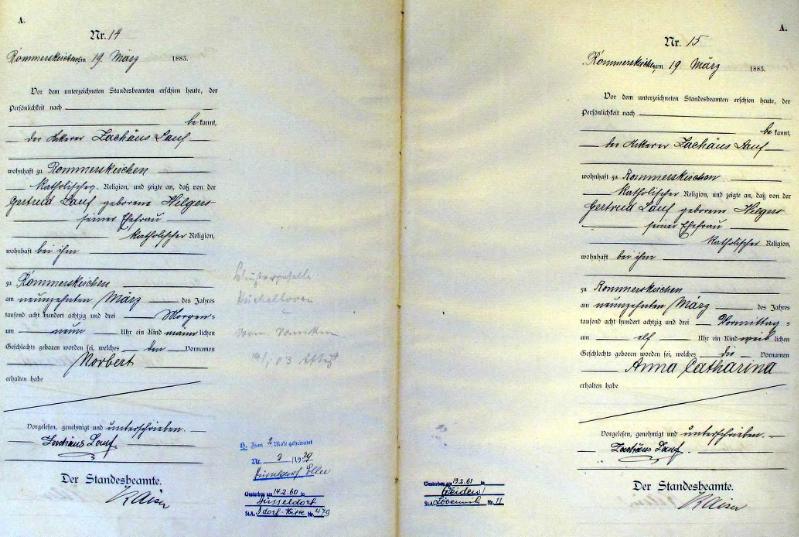 A.
Nr. 14
Rommerskirchen am 19 März 1883.
Vor dem unterzeichneten Standesbeamten erschien heute, der
Persönlichkeit nach
be kannt,
der Ackerer Zachäus Lauf
wohnhaft zu Rommerskirchen
katholischer Religion, und zeigte an, daß von der
Gertrud Lauf geborene Hilgers
seiner Ehefrau
katholischer Religion,
wohnhaft bei ihm
zu Rommerskirchen
am neunzehnten März des Jahres
tausend acht hundert achtzig und drei Morgens
um neun Uhr ein Kind männlichen
Geschlechts geboren worden sei, welches den Vornamen
Norbert
erhalten habe
Vorgelesen, genehmigt und unterschrieben.
Zachäus Lauf
Der Standesbeamte.
Kaiser
14/1 03
Zum 2 Male geheiratet
Nr. 3 /1939
Düsseldorf Eller
Gestorben am 14.2.60 in
Düsseldorf
StA. Nr. 479
A.
Nr. 15
Rommerskirchen am 19 März 1883.
Vor dem unterzeichneten Standesbeamten erschien heute, der
Persönlichkeit nach
be kannt,
der Ackerer Zachäus Lauf
wohnhaft zu Rommerskirchen
katholischer Religion, und zeigte an, daß von der
Gertrud Lauf geborene Hilgers
seiner Ehefrau
katholischer Religion,
wohnhaft bei ihm
zu Rommerskirchen
am neunzehnten März des Jahres
tausend acht hundert achtzig und drei Vormittags
um elf Uhr ein Kind weiblichen
Geschlechts geboren worden sei, welches die Vornamen
Anna Catharina
erhalten habe
Vorgelesen, genehmigt und unterschrieben.
Zachäus Lauf
Der Standesbeamte.
Kaiser
Gestorben am 19.3.61 in
Weiden
StA. Lövenich Nr. 11